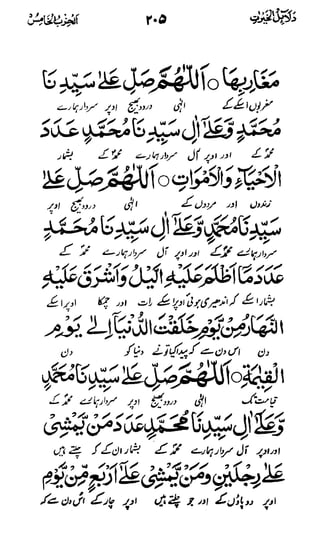 دلائل الخیرات ۲۰۵ الحزب الخامس
مَغَارِبِهَا ○ اَللّٰهُمَّ صَلِّ عَلٰى سَيِّدِنَا
مغربوں اسکے کے الٰہی درود بھیج اوپر سردار ہمارے
مُحَمَّدٍ وَّعَلٰٓى اٰلِ سَيِّدِنَا مُحَمَّدٍ عَدَدَ
محمدؐ کے اور اوپر آل سردار ہمارے محمدؐ کے بشمار
الْاَحْيَآءِ وَالْاَمْوَاتِ ○ اَللّٰهُمَّ صَلِّ عَلٰى
زندوں اور مردوں کے الٰہی درود بھیج اوپر
سَيِّدِنَا مُحَمَّدٍ وَّعَلٰٓى اٰلِ سَيِّدِنَا مُحَمَّدٍ
سردار ہمارے محمدؐ کے اور اوپر آل سردار ہمارے محمدؐ کے
عَدَدَ مَآ اَظْلَمَ عَلَيْهِ الَّيْلُ وَاَشْرَقَ عَلَيْهِ
بشمار اسکے کہ اندھیری ہوئی اوپر اسکے رات اور چمکا اوپر اسکے
النَّهَارُ مِنْ يَّوْمِ خَلَقْتَ الدُّنْيَآ اِلٰى يَوْمِ
دن اس دن سے کہ پیدا کیا تونے دنیا کو دن
الْقِيٰمَةِ ○ اَللّٰهُمَّ صَلِّ عَلٰى سَيِّدِنَا مُحَمَّدٍ
قیامت تک الٰہی درود بھیج اوپر سردار ہمارے محمدؐ کے
وَّعَلٰٓى اٰلِ سَيِّدِنَا مُحَمَّدٍ عَدَدَ مَنْ يَّمْشِيْ
اور اوپر آل سردار ہمارے محمدؐ کے بشمار ان کے کہ چلتے ہیں
عَلٰى رِجْلَيْنِ وَمَنْ يَّمْشِيْ عَلٰٓى اَرْبَعٍ مِّنْ يَّوْمِ
اوپر دو پاؤں کے اور جو چلتے ہیں اوپر چار کے اس دن سے کہ